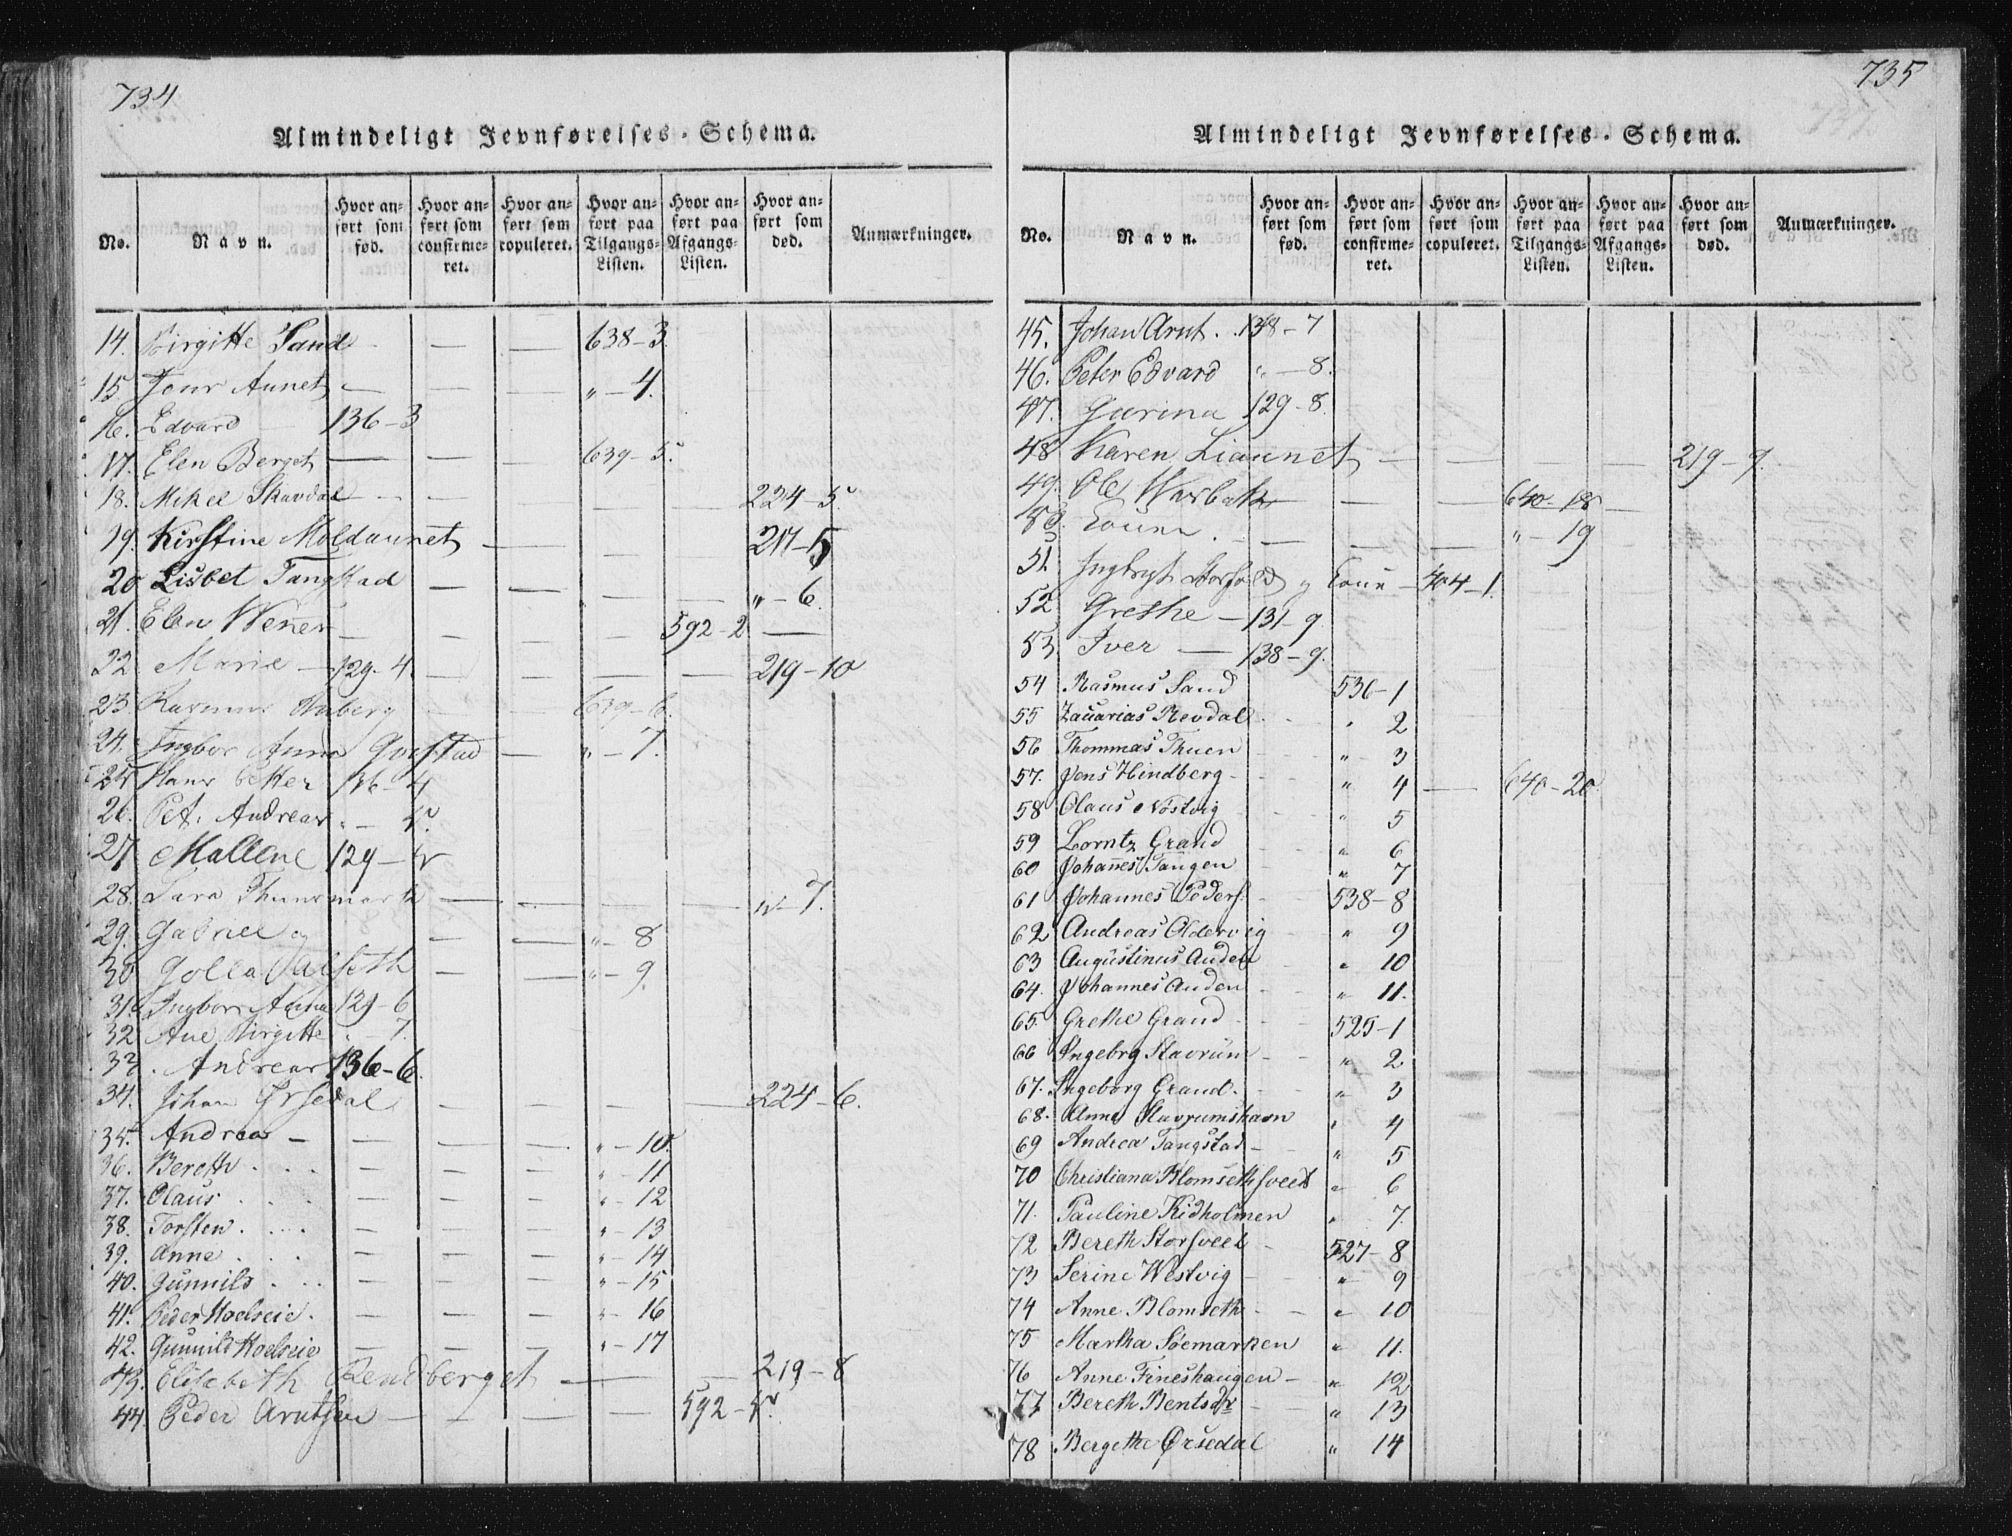 734
Almindeligt Jevnførelses-Schema.
No. Navn. Hvor anført som fød. Hvor anført som confirmeret. Hvor anført som copuleret. Hvor anført paa Tilgangs-Listen. Hvor anført paa Afgangs-Listen. Hvor anført som død. Anmærkninger.
14. Birgitte Sand — — 638-3.
15 Jens Aunet — — — " - 4.
16. Edvard — 136-3
17. Elen Berget — — — 639-5.
18. Mikel Skavdal — — — 224-5.
19. Kirstine Moldaunet — — — 217-5
20 Lisbet Tangstad — — — — — " - 6.
21. Elen — — — — 592-2 —
22 Marie — 129-4. — — — — 219-10
23 Rasmus — — 639-6.
24. Ingbor Anna — " - 7.
25 Hans Petter 136-4
26. Pet. Andreas " - 5.
27 Mallene 129-5
28. — — — — " - 7.
29. Gabriel og — — " - 8
30 — — " - 9.
31. Ingbor Anna 129-6
32 Ane Birgitte " - 7.
33. Andreas 136-6.
34. Johan Ørsedal — — — — 224-6.
35. Andreas — — — — " - 10.
36. Bereth . . . — — — " - 11
37. Claus . . . — — — " - 12
38. Torsten . . . — — — " - 13
39. Anne . . . — — — " - 14
40. Gunnild . . . — — — " - 15
41. Peder Hoelseie . — — — " - 16
42. Gunnild Hoelseie — — — " - 17
43. Elisabeth Rendberget — — 219-8
44. Peder Arntsen — — — — 592-5.
735
Almindeligt Jevnførelses-Schema.
No. Navn. Hvor anført som fød. Hvor anført som confirmeret. Hvor anført som copuleret. Hvor anført paa Tilgangs-Listen. Hvor anført paa Afgangs-Listen. Hvor anført som død. Anmærkninger.
45. Johan Arnt . . 138-7
46. Peter Edvard " - 8.
47. Gurina 129-8.
48 Karen Liaunet — — — — 219-9.
49. Ole — — — 640-18 —
50. . — — — " - 19
51. — 404-1.
52 Grethe — 131-9
53. Iver — 138-9.
54 Rasmus Sand 536-1
55 Zacarias Revdal " 2
56 Thommas Thuen " 3
57. Jens Hindberg " 4 — 640-20.
58 Claus Nöstvig " 5
59 Lorntz Grand " 6
60 Johañes Tangen " 7
61 Johannes Peders. 538-8
62 Andreas Oldervig " 9
63 Augustinus Auden " 10
64. Johannes Auden " 11.
65. Grethe Grand 525-1
66 Ingebrg Stavrüm " 2
67. Ingeborg Grand. " 3
68. Anne Stavrumshavn " 4
69 Andrea Tangstad " 5
70 Christiana Blomsethsveet " 6
71. Pauline Kidholmen " 7.
72 Bereth Storsveet 527-8
73 Serine Westvig " 9
74 Anne Blomseth " 10
75 Martha Söemarken " 11.
76 Anne Fineshaugen — " 12
77 Bereth Bentsdr " 13
78 Bergethe Ørsedal " 14